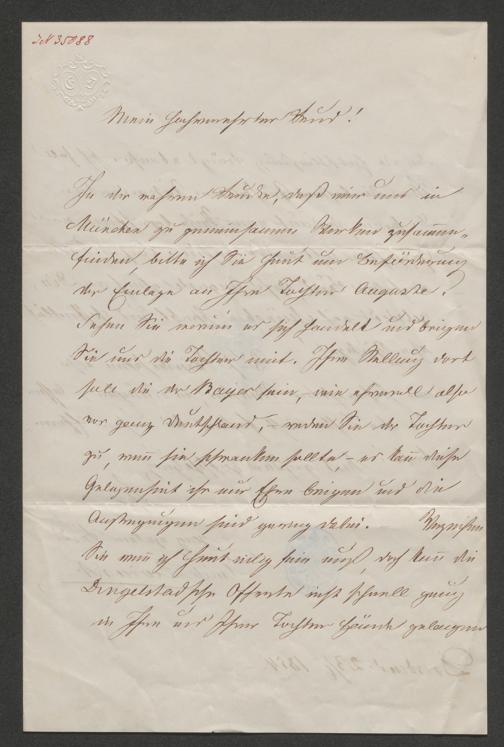 IN 35088
Mein hochverehrter Freund!
In der wahren Freude, daß wir uns in
München zu gemeinsamem Wirken zusammen-
finden, bitte ich Sie heut um Beförderung
der Einlage an Ihre Tochter Auguste.
Sehen Sie worum es sich handelt und bringen
Sie uns die Tochter mit. Ihre Stellung dort
soll die der Bayer sein, wie ehrenvoll also
vor ganz Deutschland, – reden Sie der Tochter
zu, wenn sie schwanken sollte, – es kann diese
Gelegenheit ihr nur Ehren bringen und die
sind gering dabei. Verzeihen
Sie wenn ich heut eilig sein muß doch kann die
Dingelstedt'sche Offerte nicht schnell genug
in Ihre und Ihrer Tochter Hände gelangen